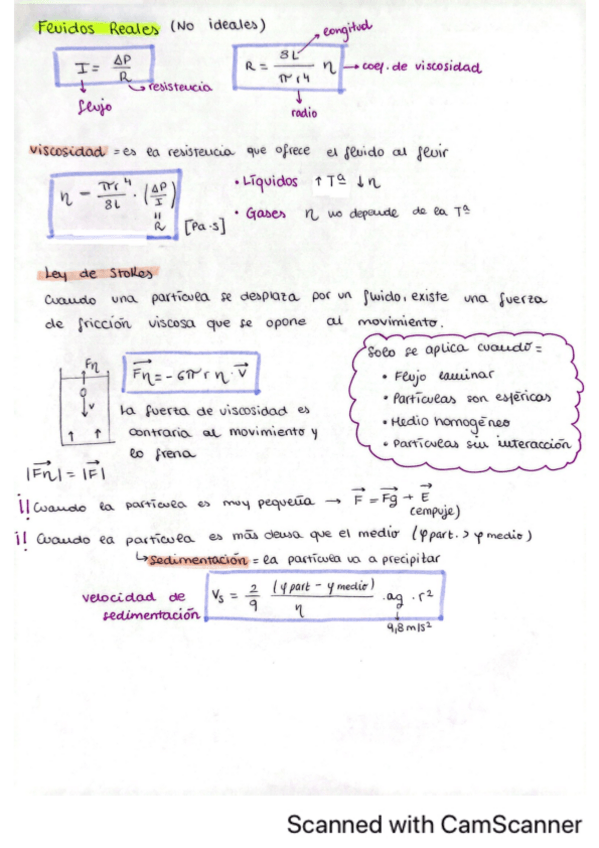 Fluidos Reales (No ideales)
I = ΔP / R
flujo
resistencia
R = 8L / πr⁴ η
longitud
coef. de viscosidad
radio
viscosidad = es la resistencia que ofrece el fluido al fluir
η = πr⁴ / 8L · (ΔP / I)
R
[Pa·s]
• Líquidos ↑Tª ↓η
• Gases η no depende de la Tª
Ley de Stokes
Cuando una partícula se desplaza por un fluido, existe una fuerza
de fricción viscosa que se opone al movimiento.
Fη
v
Fη = - 6πr η · v
La fuerza de viscosidad es
contraria al movimiento y
lo frena
|Fη| = |F|
Solo se aplica cuando =
• Flujo laminar
• Partículas son esféricas
• Medio homogéneo
• Partículas sin interacción
¡! Cuando la partícula es muy pequeña → F = Fg + E
(empuje)
¡! Cuando la partícula es más densa que el medio (φpart. > φmedio)
↳ sedimentación = la partícula va a precipitar
velocidad de
sedimentación
Vs = 2/9 (φpart - φmedio) / η · ag · r²
9,8 m/s²
Scanned with CamScanner